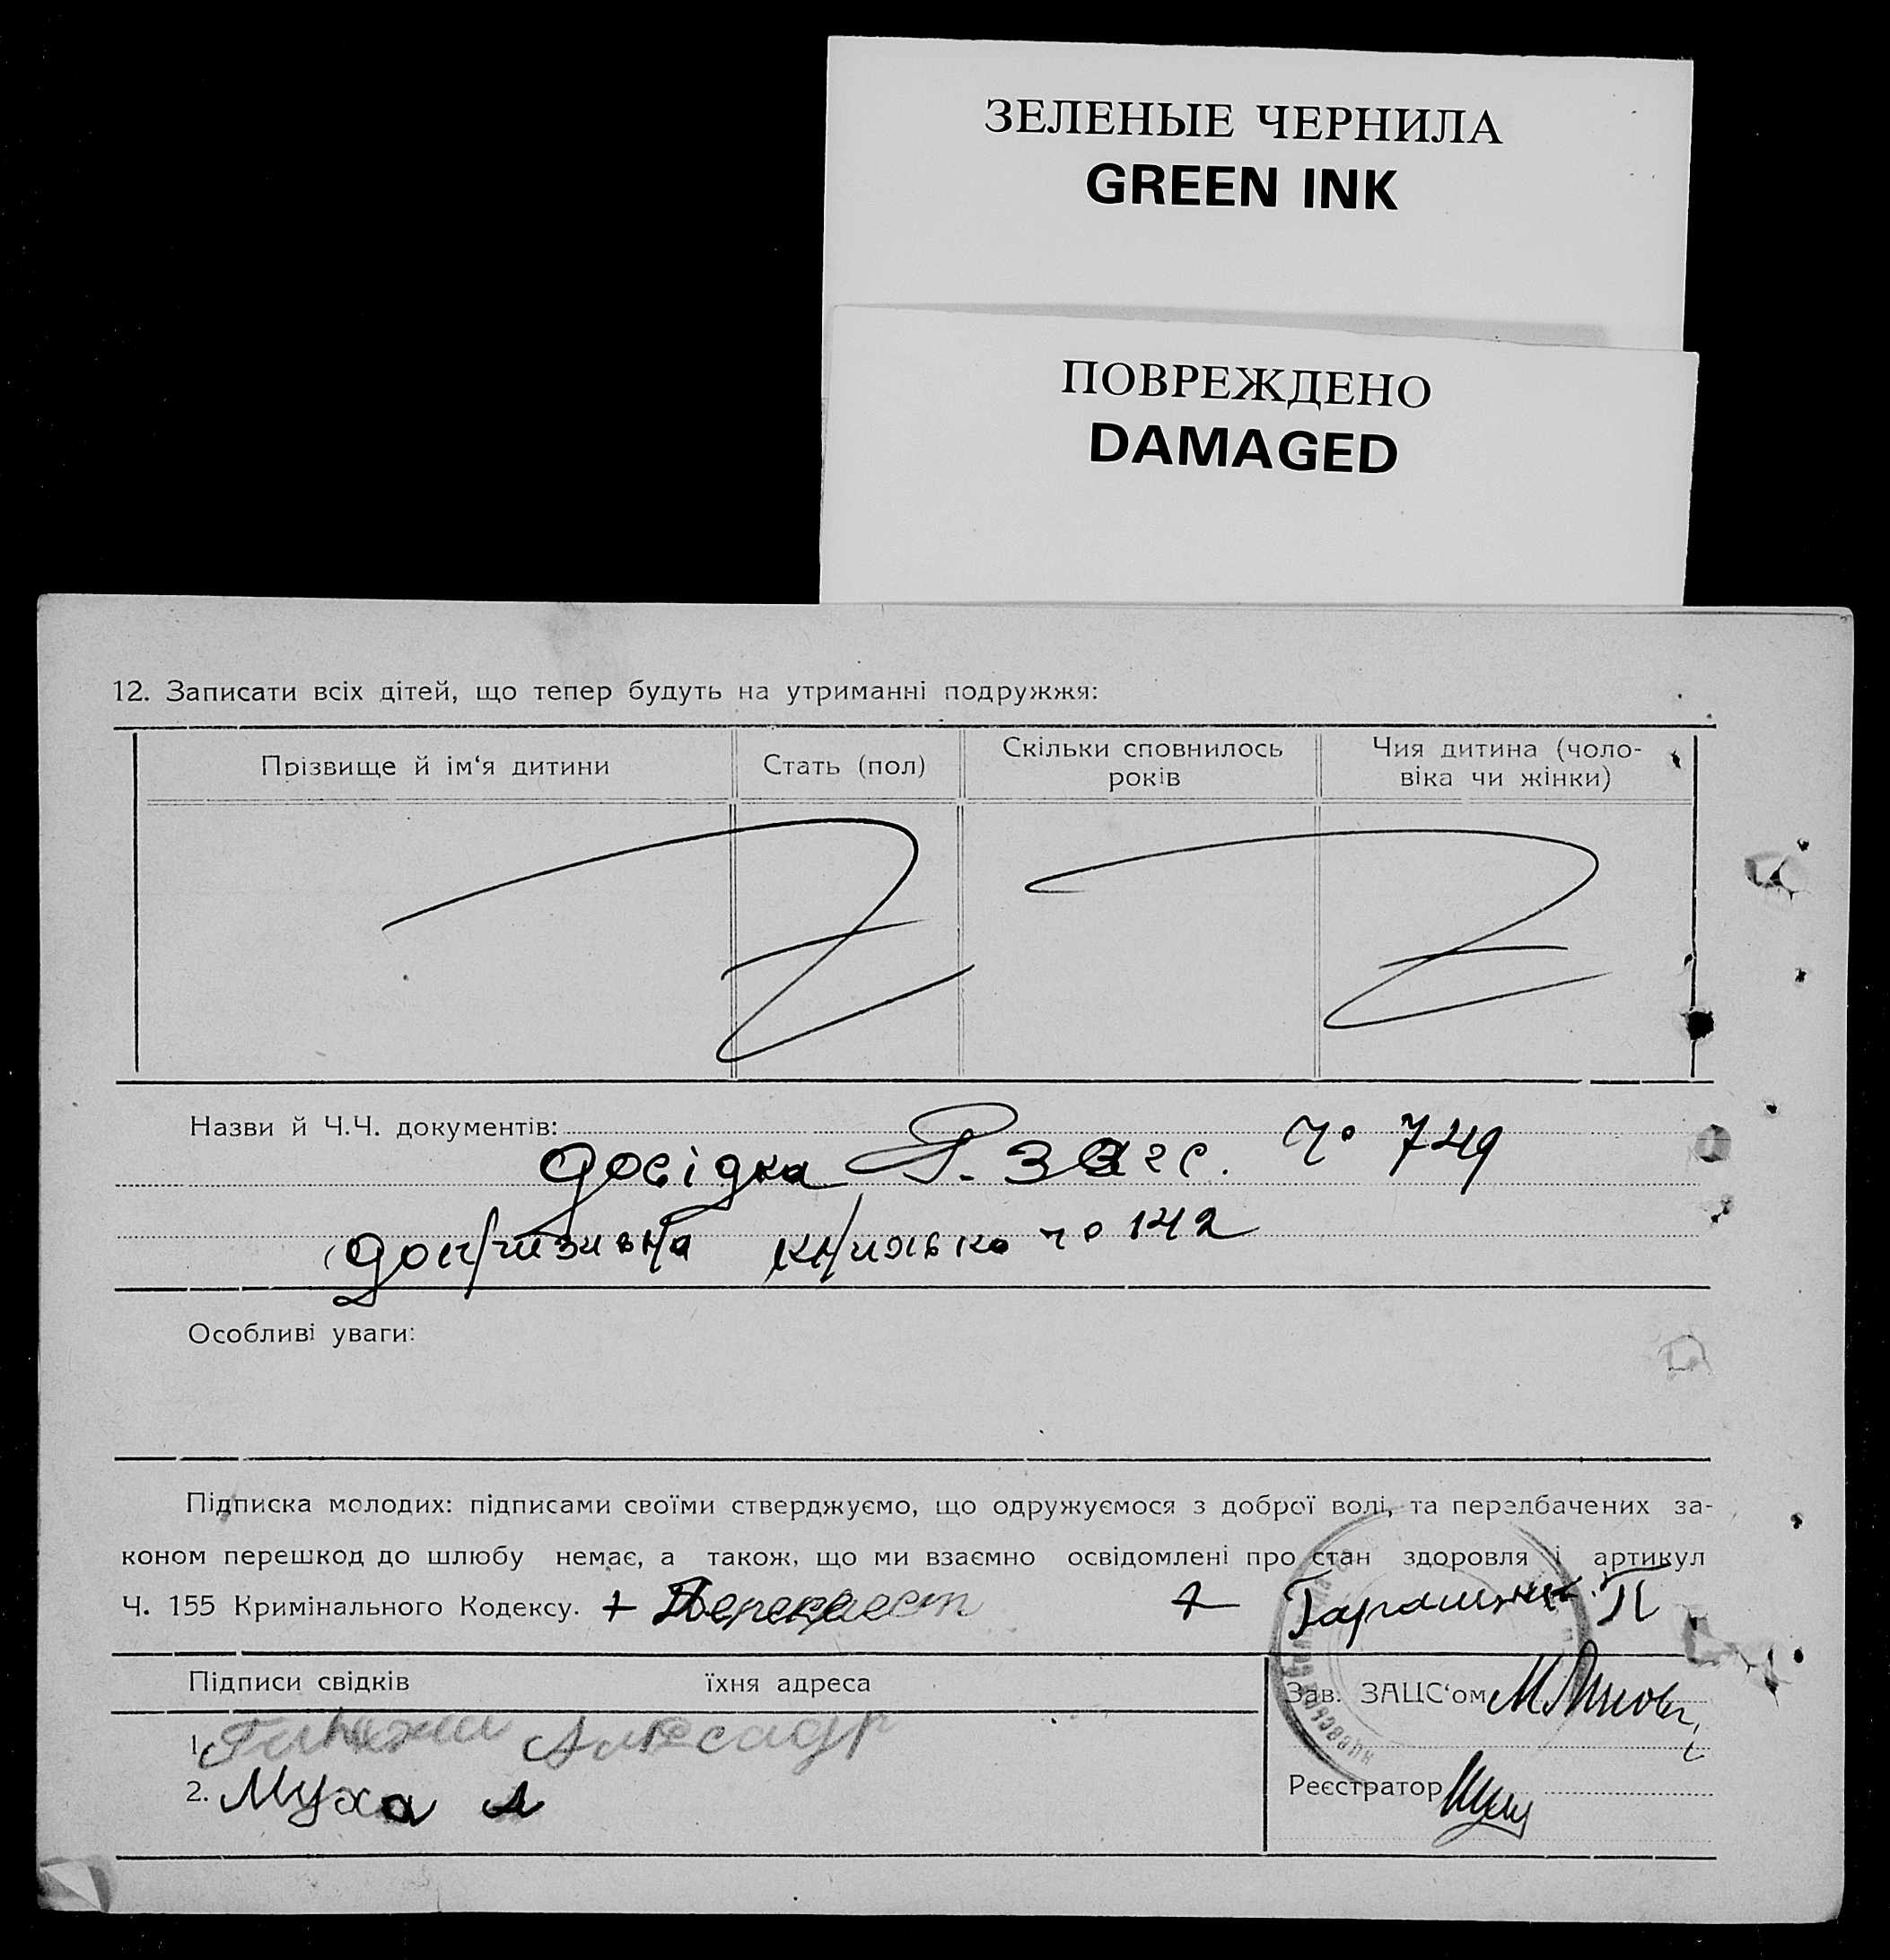 ЗЕЛЕНЫЕ ЧЕРНИЛА
GREEN INK
ПОВРЕЖДЕНО
DAMAGED
12. Записати всіх дітей, що тепер будуть на утриманні подружжя:
Прізвище й ім‘я дитини
Стать (пол)
Скільки сповнилось
років
Чия дитина (чоло-
віка чи жінки)
Назви й Ч.Ч. документів:
довідка Р. Загс. № 749
допризивна книжка № 142
Особливі уваги:
Підписка молодих: підписами своїми стверджуємо, що одружуємося з доброї волі, та передбачених за-
коном перешкод до шлюбу немає, а також, що ми взаємно освідомлені про стан здоровля і артикул
Ч. 155 Кримінального Кодексу. + Перехрест + П
Підписи свідків їхня адреса
1.
2. Муха А
Зав. ЗАЦС‘ом
Реєстратор